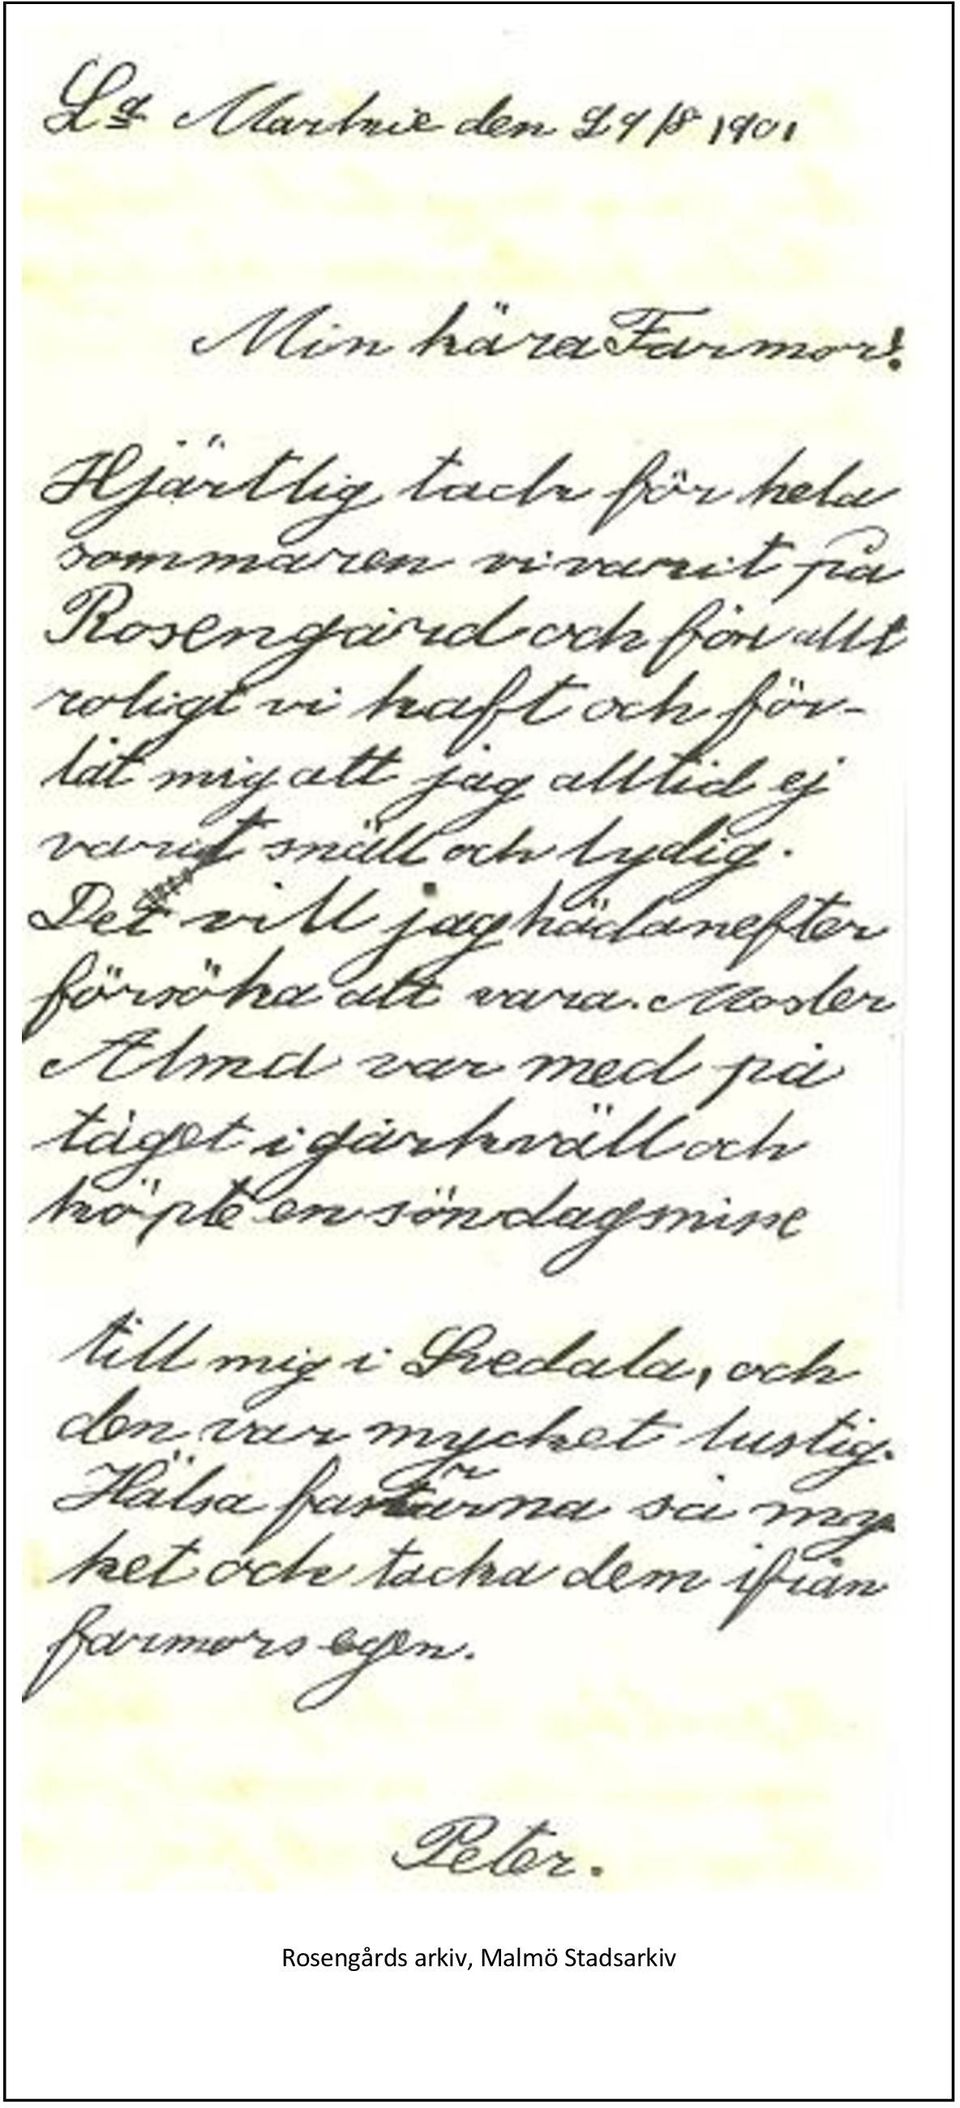 Lª Markie den 29/8 1901
Min kära Farmor!
Hjärtlig tack för hela
sommaren vi varit på
Rosengård och för allt
roligt vi haft och för-
låt mig att jag alltid ej
varit snäll och lydig.
Det vill jag hädanefter
försöka att vara. Moster
Alma var med på
tåget i går kväll och
köpte en söndagsnisse
till mig i Svedala, och
den var mycket lustig.
Hälsa fastrarna så my
ket och tacka dem ifrån
farmors egen.
Peter.
Rosengårds arkiv, Malmö Stadsarkiv